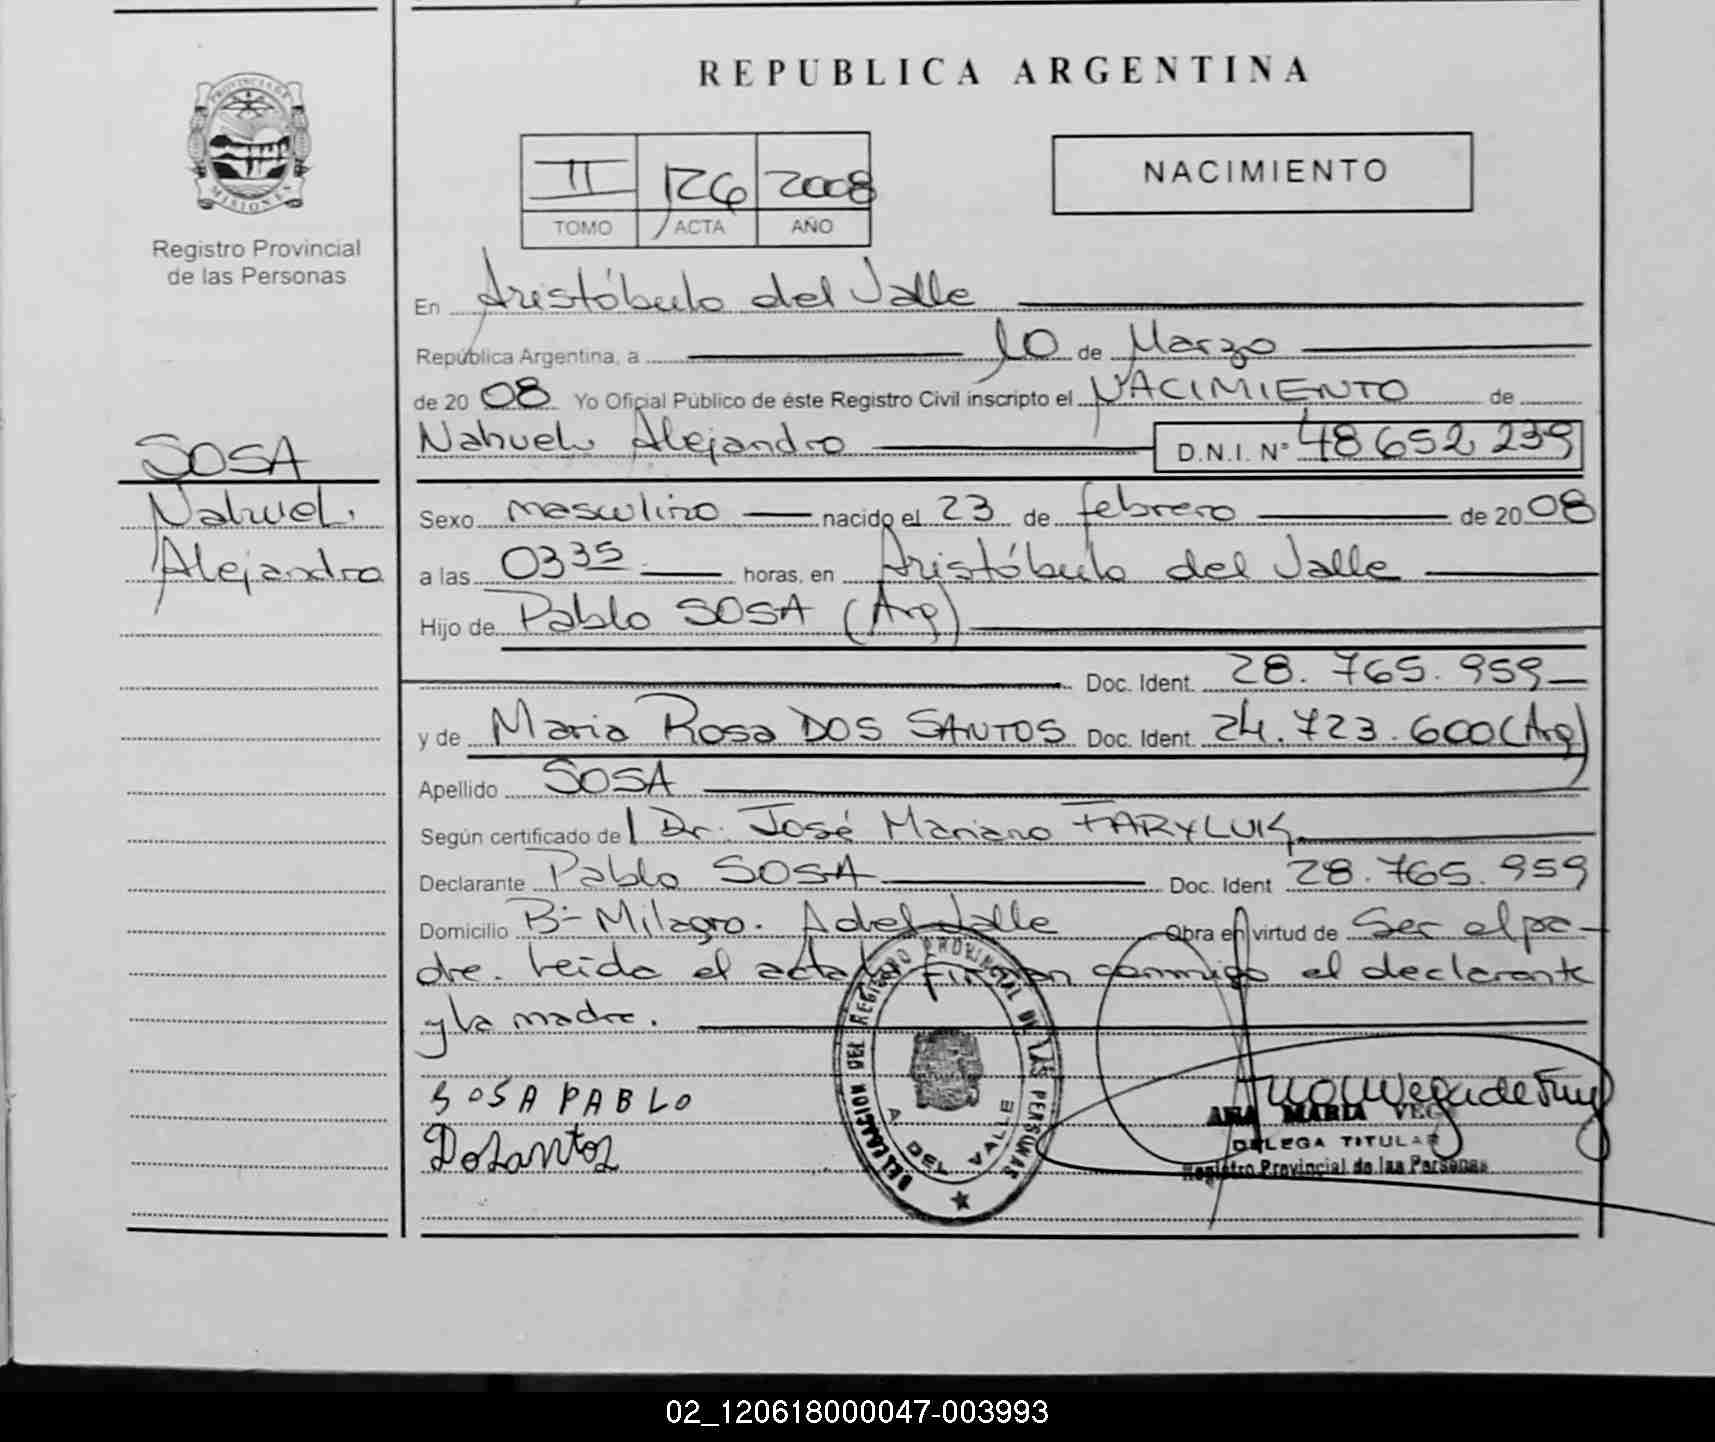 REPUBLICA ARGENTINA
PROVINCIA DE
MISIONES
Registro Provincial
de las Personas
II 126 2008
TOMO ACTA AÑO
NACIMIENTO
En Aristóbulo del Valle
República Argentina, a 10 de Marzo
de 20 08 Yo Oficial Público de éste Registro Civil inscripto el NACIMIENTO de
Nahuel Alejandro D.N.I. N° 48 652 239
SOSA
Nahuel
Alejandro
Sexo masculino nacido el 23 de febrero de 20 08
a las 03 35 horas, en Aristóbulo del Valle
Hijo de Pablo SOSA (Arg)
Doc. Ident. 28.765.959
y de Maria Rosa DOS SANTOS Doc. Ident. 24.723.600 (Arg)
Apellido SOSA
Según certificado de Dr. José Mariano
Declarante Pablo SOSA Doc. Ident 28.765.959
Domicilio B- Milagro. A del Valle Obra en virtud de Ser el pa-
dre. Leida el acta la firman conmigo el declarante
y la madre.
SOSA PABLO
DELEGACION DEL REGISTRO PROVINCIAL DE LAS PERSONAS
A. DEL VALLE
ANA MARIA
DELEGA TITULAR
Registro Provincial de las Personas
02_120618000047-003993